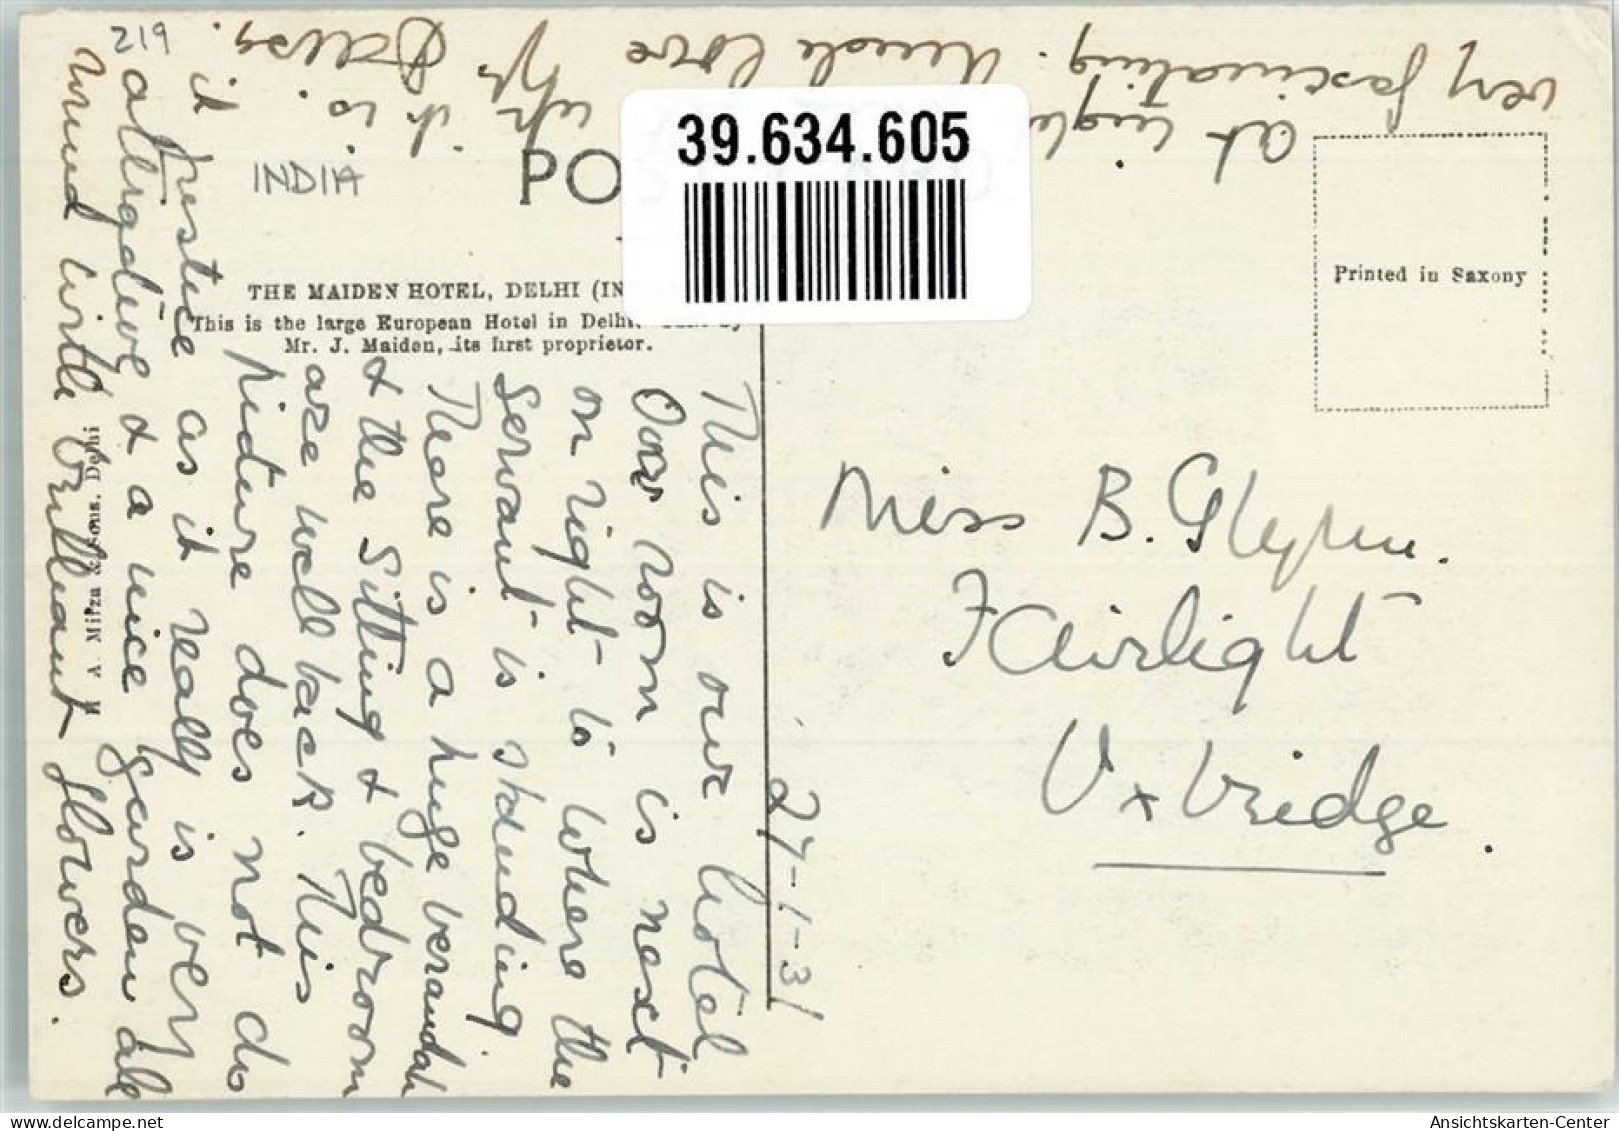 219
INDIA
39.634.605
PO
THE MAIDEN HOTEL, DELHI (IN
This is the large European Hotel in Delhi.
Mr. J. Maiden, its first proprietor.
H. A. Mirza & Sons. Delhi
Printed in Saxony
This is our hotel
Our room is next
on right to where the
Servant is standing
There is a huge verandah
& the sitting & bedroom
are well back. This
picture does not do
it justice as it really is very
attractive & a nice garden all
round with brilliant flowers.
at night
up it is
very fascinating. Much love
Daisy.
27-1-31
Miss B. Glynn.
Fairlight
Uxbridge.
Ansichtskarten-Center